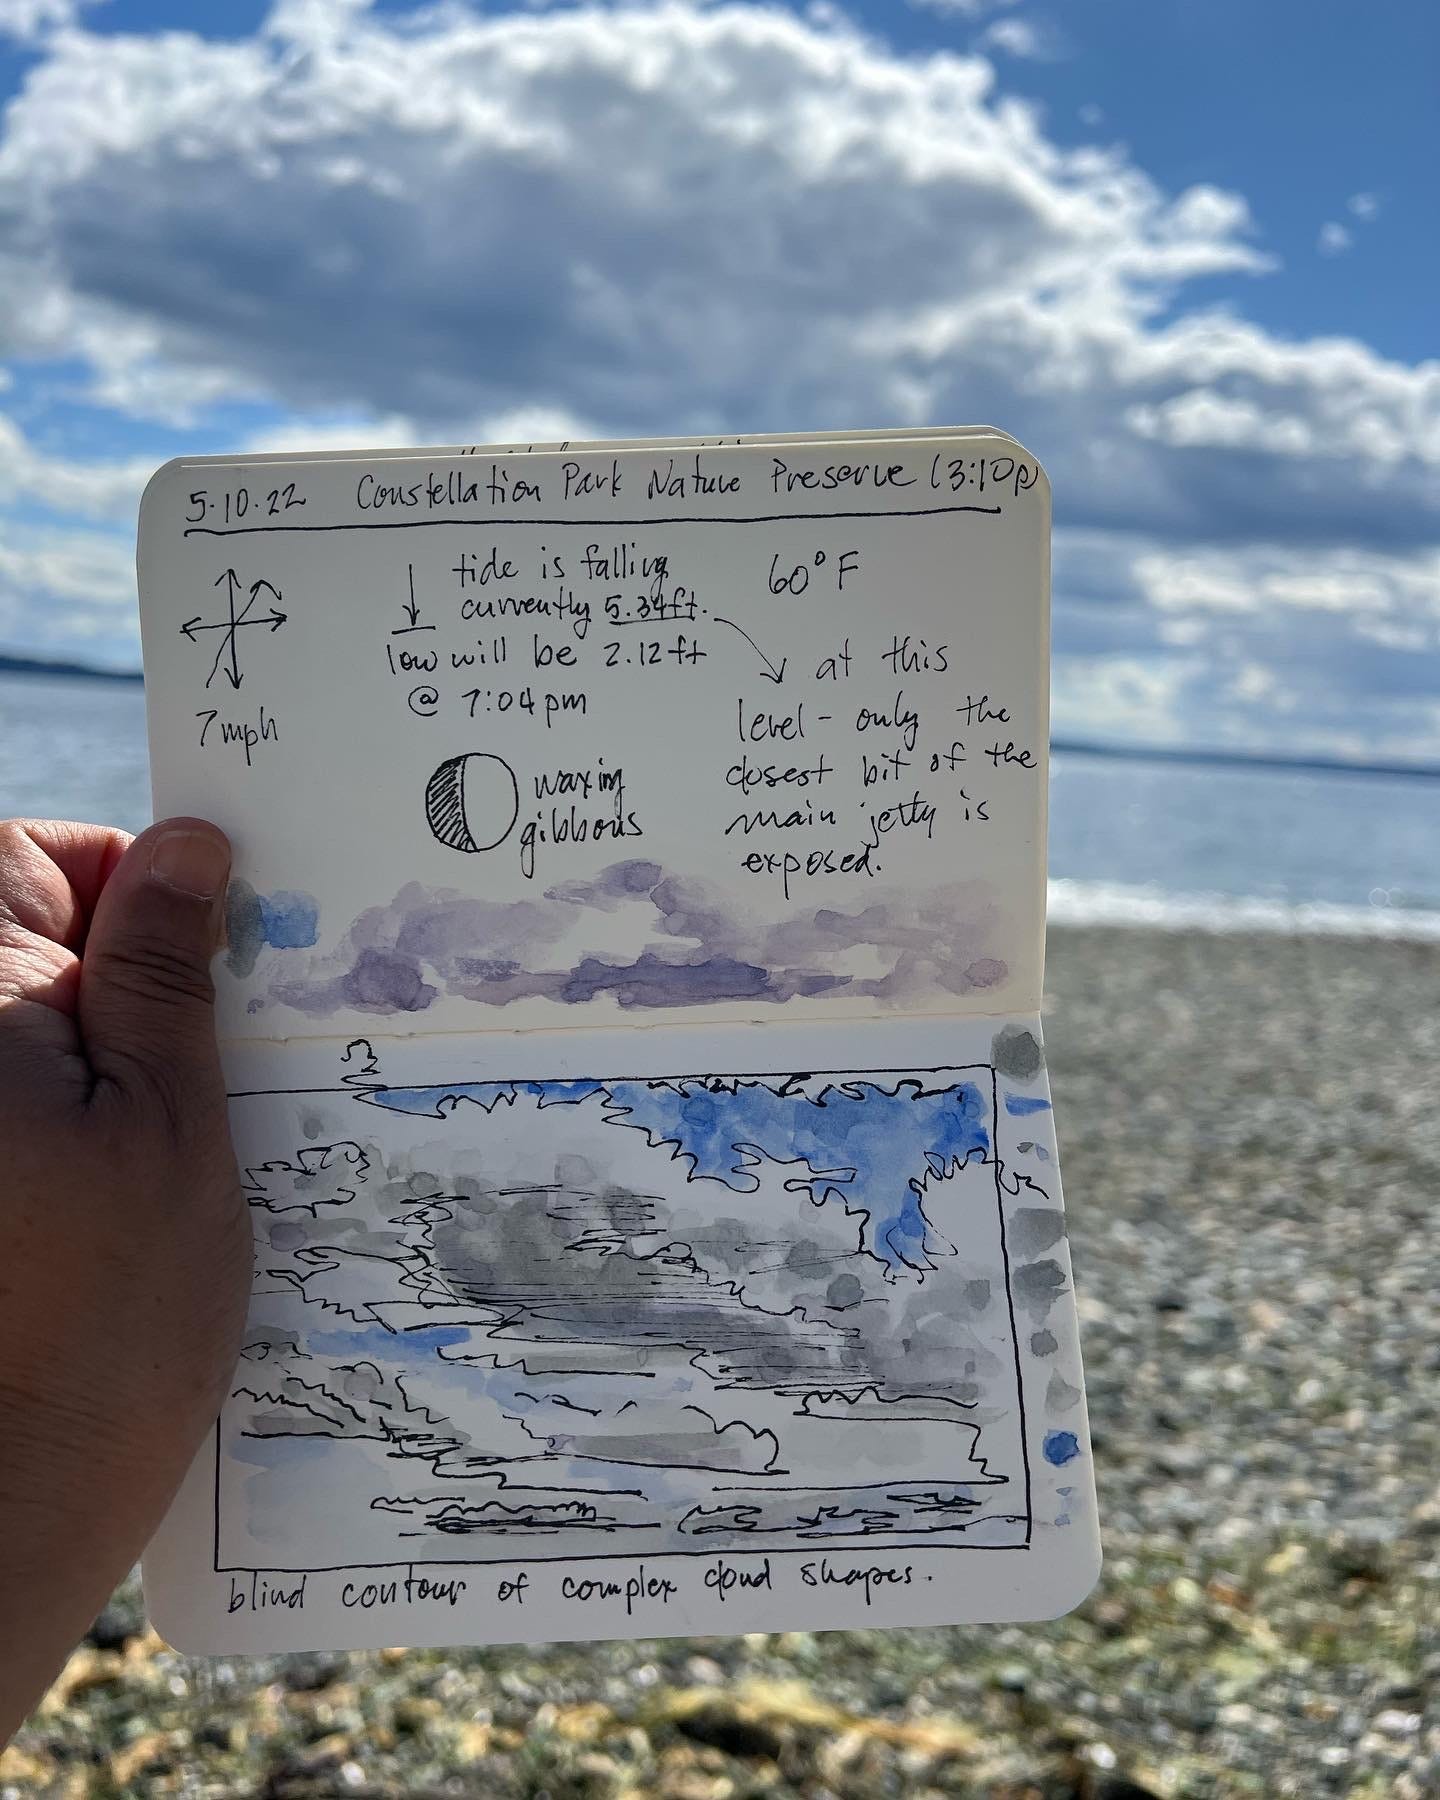 5.10.22 Constellation Park Nature Preserve (3:10p)
tide is falling
currently 5.34ft.
low will be 2.12ft
@ 7:04pm
60°F
at this
level - only the
closest bit of the
main jetty is
exposed.
7mph
waxing
gibbous
blind contour of complex cloud shapes.